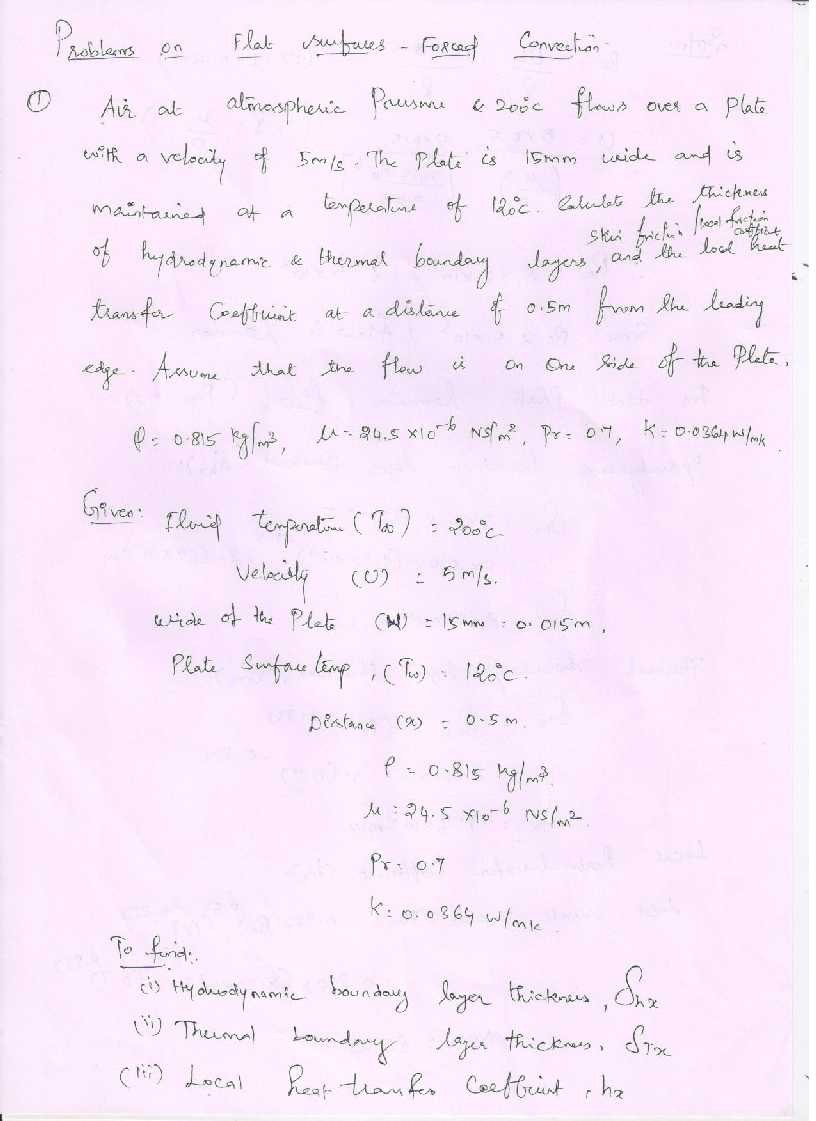 Problems on Flat surfaces - Forced Convection.
① Air at atmospheric Pressure & 200°c flows over a plate
with a velocity of 5m/s. The Plate is 15mm wide and is
maintained at a temperature of 120°c. Calculate the thickness
of hydrodynamic & thermal boundary layers, skin friction / local friction coefficient and the local heat
transfer Coefficient at a distance of 0.5m from the leading
edge. Assume that the flow is on One Side of the Plate.
ρ = 0.815 kg/m³, μ = 24.5 x10⁻⁶ NS/m², Pr = 0.7, K = 0.0364 w/mk.
Given: Fluid temperature (T∞) = 200°c
Velocity (U) = 5 m/s.
wide of the Plate (W) = 15mm = 0.015m.
Plate Surface temp, (Tw) = 120°c.
Distance (x) = 0.5 m.
ρ = 0.815 kg/m³.
μ = 24.5 x10⁻⁶ NS/m².
Pr = 0.7
K = 0.0364 w/mk
To find:
(i) Hydrodynamic boundary layer thickness, δhx
(ii) Thermal boundary layer thickness, δTx
(iii) Local heat transfer Coefficient, hx